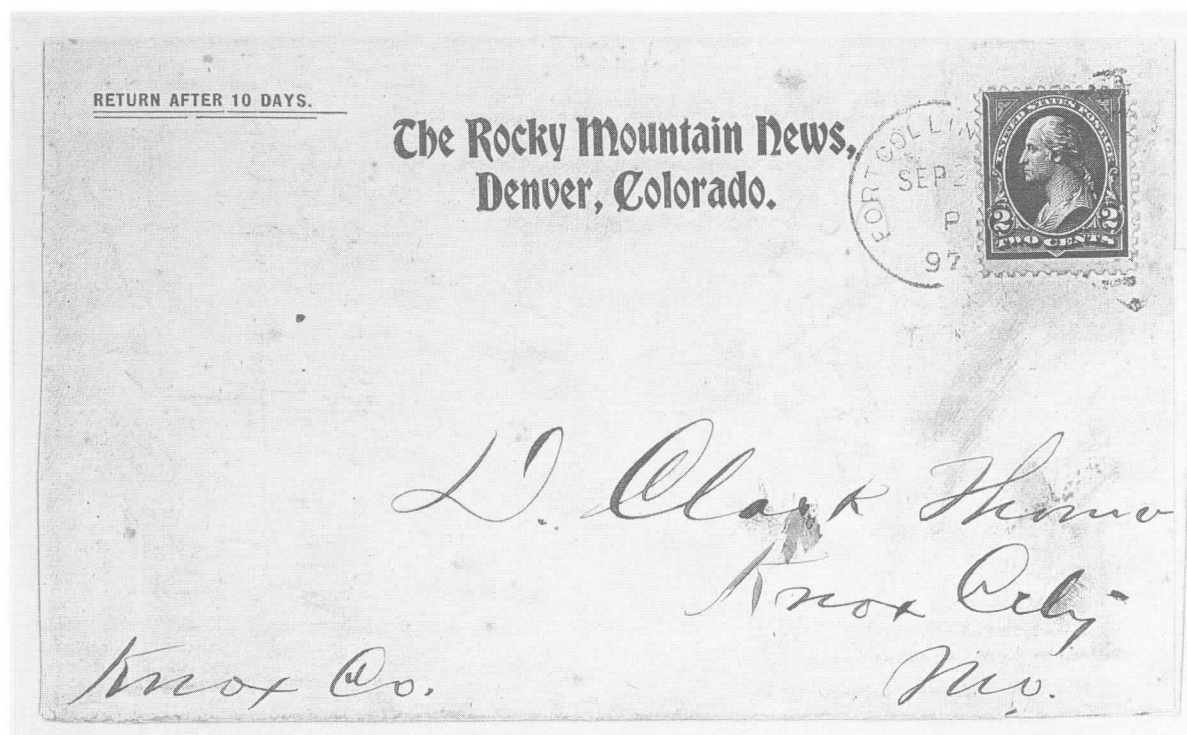 RETURN AFTER 10 DAYS.
The Rocky Mountain News,
Denver, Colorado.
FORT COLLIN
SEP
P
97
UNITED STATES POSTAGE
2 2
TWO CENTS
D. Clark Thomo
Knox City
Knox Co. Mo.